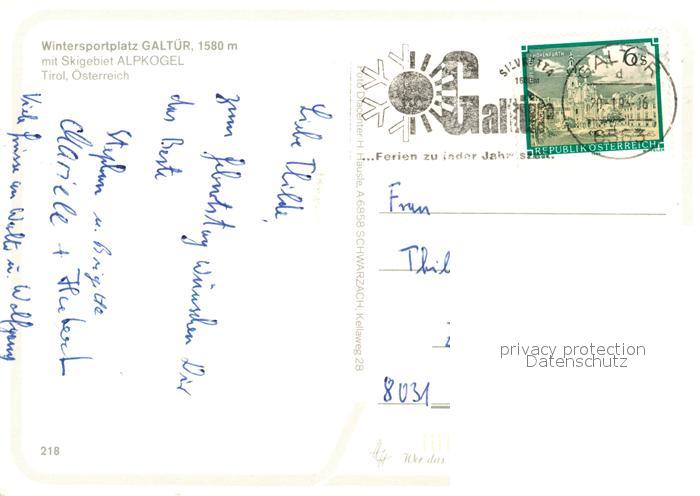 Wintersportplatz GALTÜR, 1580 m
mit Skigebiet ALPKOGEL
Tirol, Österreich
Liebe Thilde,
zum Geburtstag wünschen Dir
das Beste
Stephan u. Brigitte
Mariele + Hubert
Viele Grüsse an Walter u. Wolfgang
218
Foto Diepenter H. Hausle, A 6858 SCHWARZACH, Kellaweg 28
SILVRETTA
1580m
Galtür
...Ferien zu jeder Jahreszeit.
GALTÜR
d
6563
6 S
REPUBLIK ÖSTERREICH
Frau
Thil
8031
privacy protection
Datenschutz